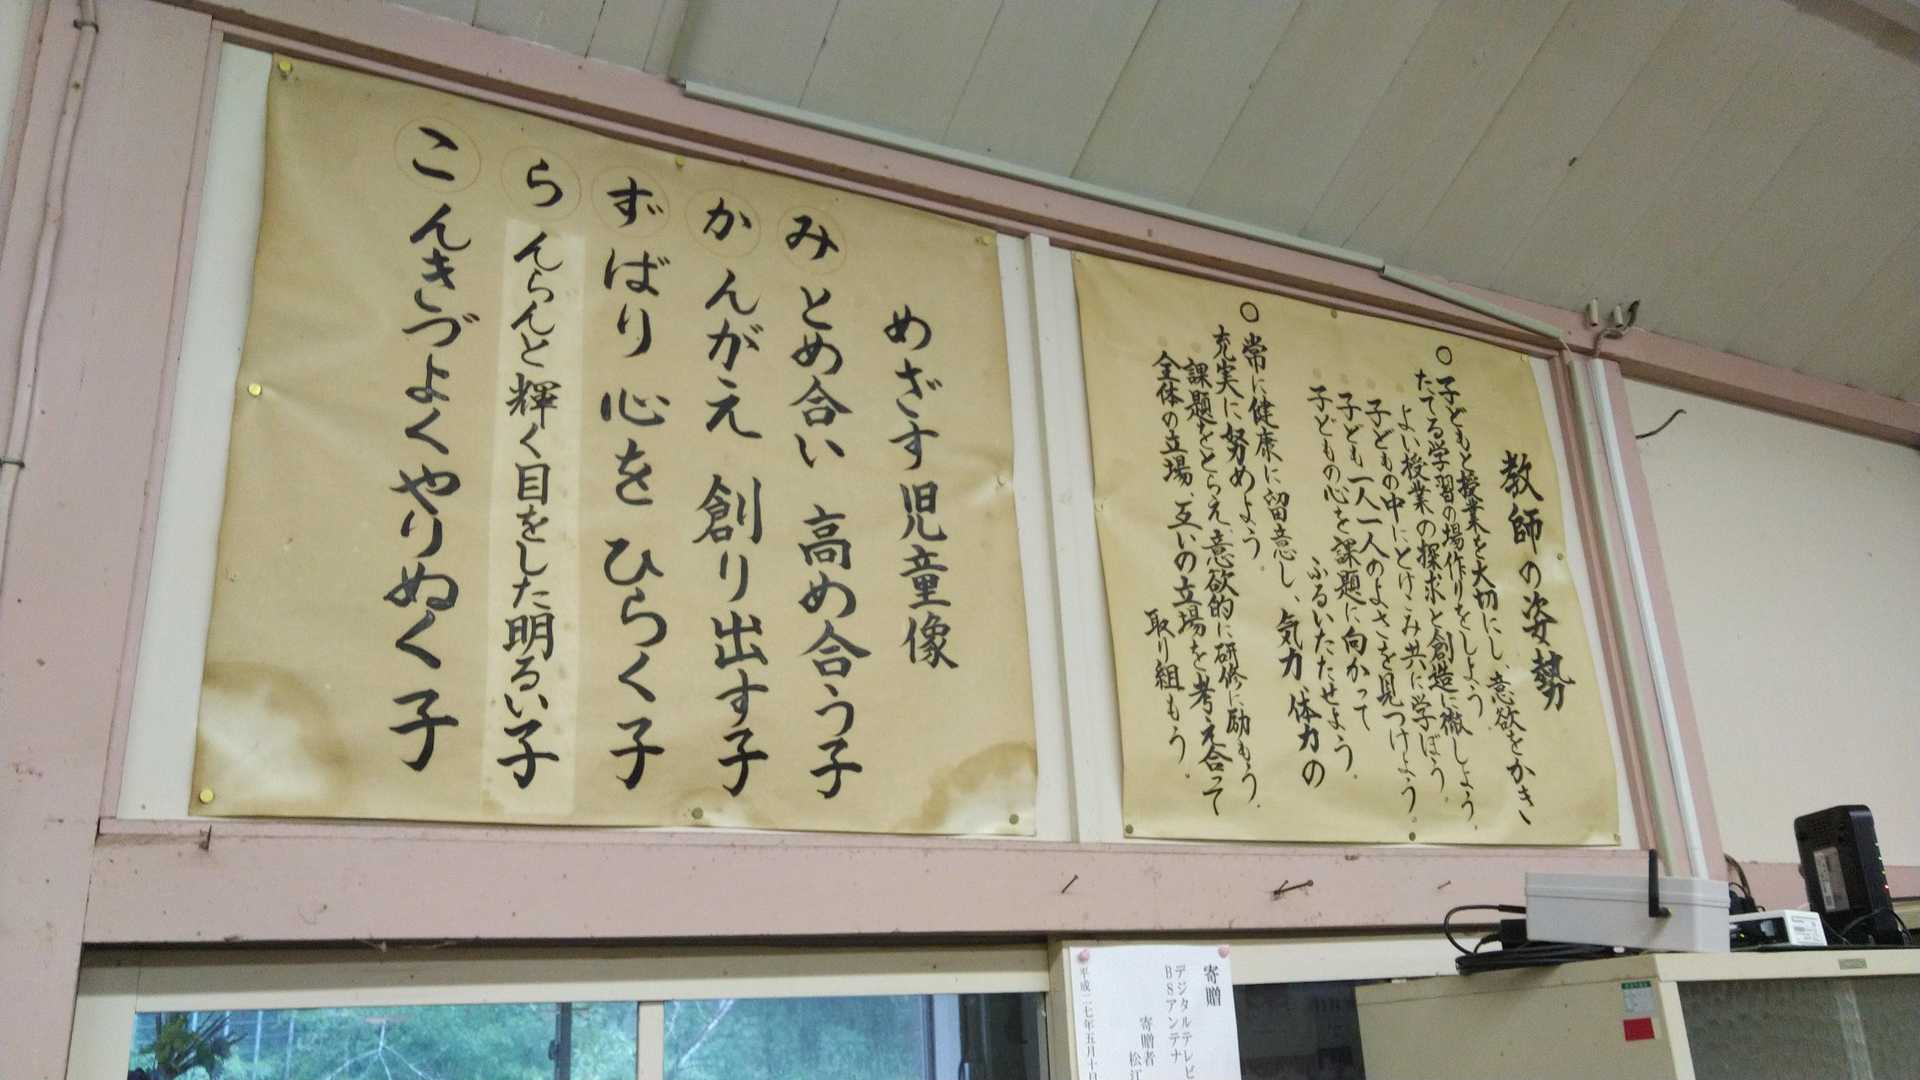 めざす児童像
みとめ合い 高め合う子
かんがえ 創り出す子
ずばり 心を ひらく子
らんらんと輝く目をした明るい子
こんきづよくやりぬく子
教師の姿勢
○子どもと授業を大切にし、意欲をかき
たてる学習の場作りをしよう
よい授業の探求と創造に徴しよう.
子どもの中にとけこみ共に学ぼう.
子ども一人一人のよさを見つけよう.
子どもの心を課題に向かって
ふるいたたせよう.
○常に健康に留意し、気力 体力の
充実に努めよう.
課題をとらえ、意欲的に研修に励もう.
全体の立場、互いの立場を考え合って
取り組もう.
寄贈
デジタルテレビ
BSアンテナ
寄贈者
松江
平成二七年五月十日